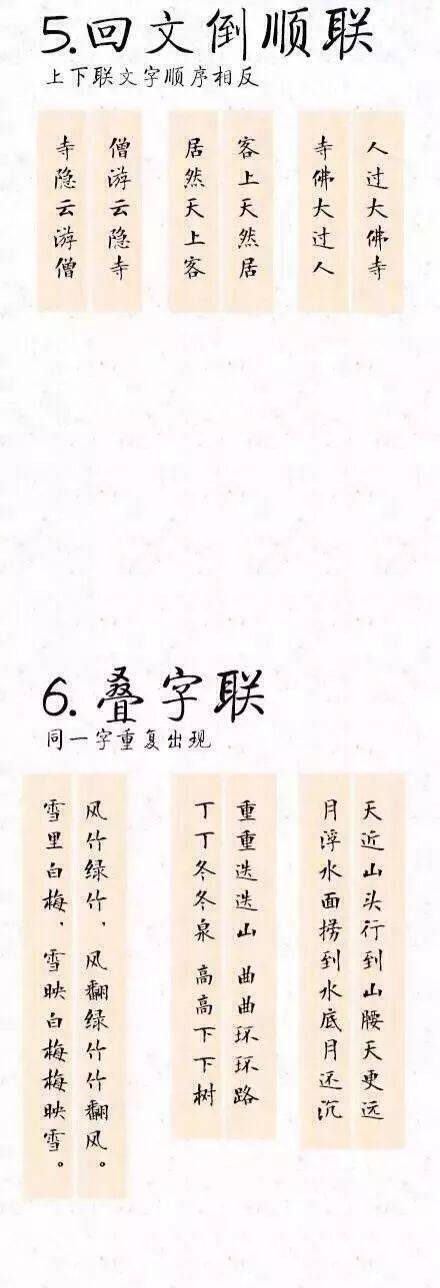 5.回文倒顺联
上下联文字顺序相反
人过大佛寺
寺佛大过人
客上天然居
居然天上客
僧游云隐寺
寺隐云游僧
6.叠字联
同一字重复出现
天近山头行到山腰天更远
月浮水面捞到水底月还沉
重重迭迭山 曲曲环环路
丁丁冬冬泉 高高下下树
风竹绿竹、风翻绿竹竹翻风。
雪里白梅、雪映白梅梅映雪。